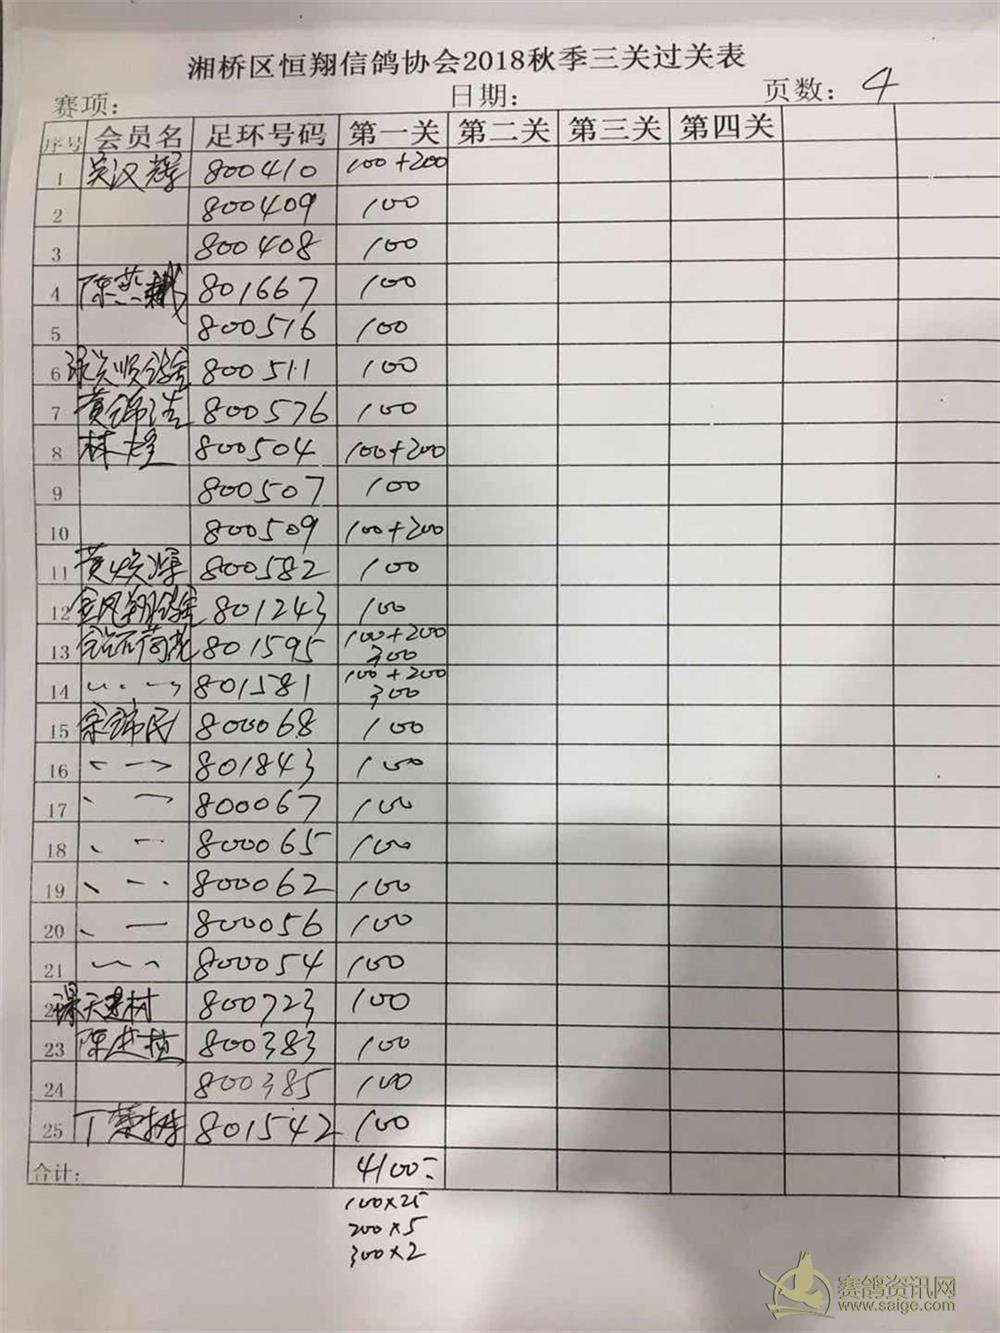 湘桥区恒翔信鸽协会2018秋季三关过关表
赛项: 日期: 页数: 4
序号 会员名 足环号码 第一关 第二关 第三关 第四关
1 吴汉辉 800410 100+200
2 800409 100
3 800408 100
4 陈燕 801667 100
5 800516 100
6 800511 100
7 黄锦浩 800576 100
8 林煌 800504 100+200
9 800507 100
10 800509 100+200
11 黄焕 800582 100
12 金凤翔鸽舍 801243 100
13 801595 100+200
300
14 801581 100+200
300
15 锦民 800068 100
16 801843 100
17 800067 100
18 800065 100
19 800062 100
20 800056 100
21 800054 100
天建材 800723 100
23 陈 800383 100
24 800385 100
25 丁 801542 100
合计: 4100
100×25
200×5
300×2
赛鸽资讯网
www.saige.com